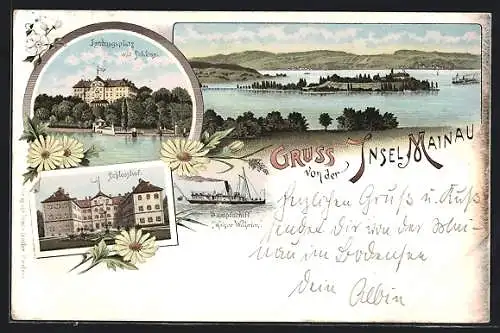 Landungsplatz
mit Schloss.
Gruss
von der
Insel Mainau
Schlosshof.
Dampfschiff
Kaiser Wilhelm.
Herzlichen Gruß u. Kuß
sendet dir von der
im Bodensee
Dein Albin